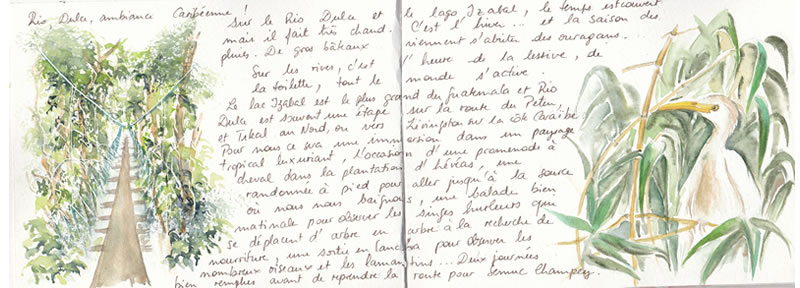 Rio Dulce, ambiance Caribéenne !
Sur le Rio Dulce et le lago Izabal, le temps est couvert
mais il fait très chaud. C'est l'hiver... et la saison des
pluies. De gros bâteaux viennent s'abriter des ouragans...
Sur les rives, c'est l'heure de la lessive, de
la toilette, tout le monde s'active.
Le lac Izabal est le plus grand du Guatemala et Rio
Dulce est souvent une étape sur la route du Peten,
et Tikal au Nord, ou vers Livingston sur la côte Caraïbe.
Pour nous ce sera une immersion dans un paysage
tropical luxuriant, l'occasion d'une promenade à
cheval dans la plantation d'hévéas, une
randonnée à pied pour aller jusqu'à la source
où nous nous baignons, une balade bien
matinale pour observer les singes hurleurs qui
se déplacent d'arbre en arbre à la recherche de
nourriture, une sortie en lancha pour observer les
nombreux oiseaux et les lamantins... Deux journées
bien remplies avant de reprendre la route pour Semuc Champey.